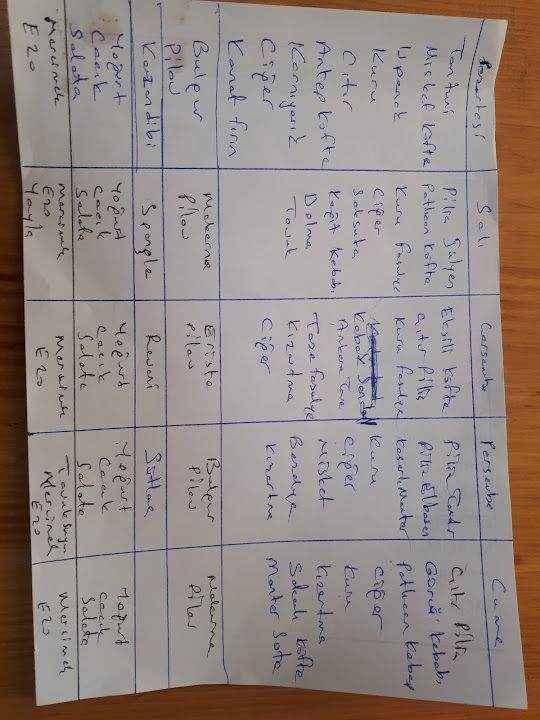 Pazartesi
Tantuni
Misket Köfte
Ispanak
Kuru
Çıtır
Antep Köfte
Karnıyarık
Ciğer
Kanat fırın
Bulgur
Pilav
Kazandibi
Yoğurt
Cacık
Salata
Mercimek
Ezo
Salı
Piliç Sülyen
Patlıcan Köfte
Kuru fasulye
Ciğer
Saksuka
Kağıt Kebabı
Dolma
Tavuk
Makarna
Pilav
Spangle
Yoğurt
Cacık
Salata
Mercimek
Ezo
Yayla
Carsamba
Eksili Köfte
Çıtır Piliç
Kuru fasulye
Kabak Sandal
Ankara Tava
Taze fasulye
Kızartma
Ciğer
Erişte
Pilav
Revani
Yoğurt
Cacık
Salata
Mercimek
Ezo
Persembe
Piliç Tandır
Piliç Elbasan
Kasarlı Mantar
Kuru
Ciğer
Misket
Bezelye
Kızartma
Bulgur
Pilav
Sütlaç
Yoğurt
Cacık
Salata
Tavuksuyu
Mercimek
Ezo
Cuma
Çıtır Piliç
Güveç Kebabı
Patlıcan Kebap
Ciğer
Kuru
Kızartma
Salçalı Köfte
Mantar Sote
Makarna
Pilav
Yoğurt
Cacık
Salata
Mercimek
Ezo